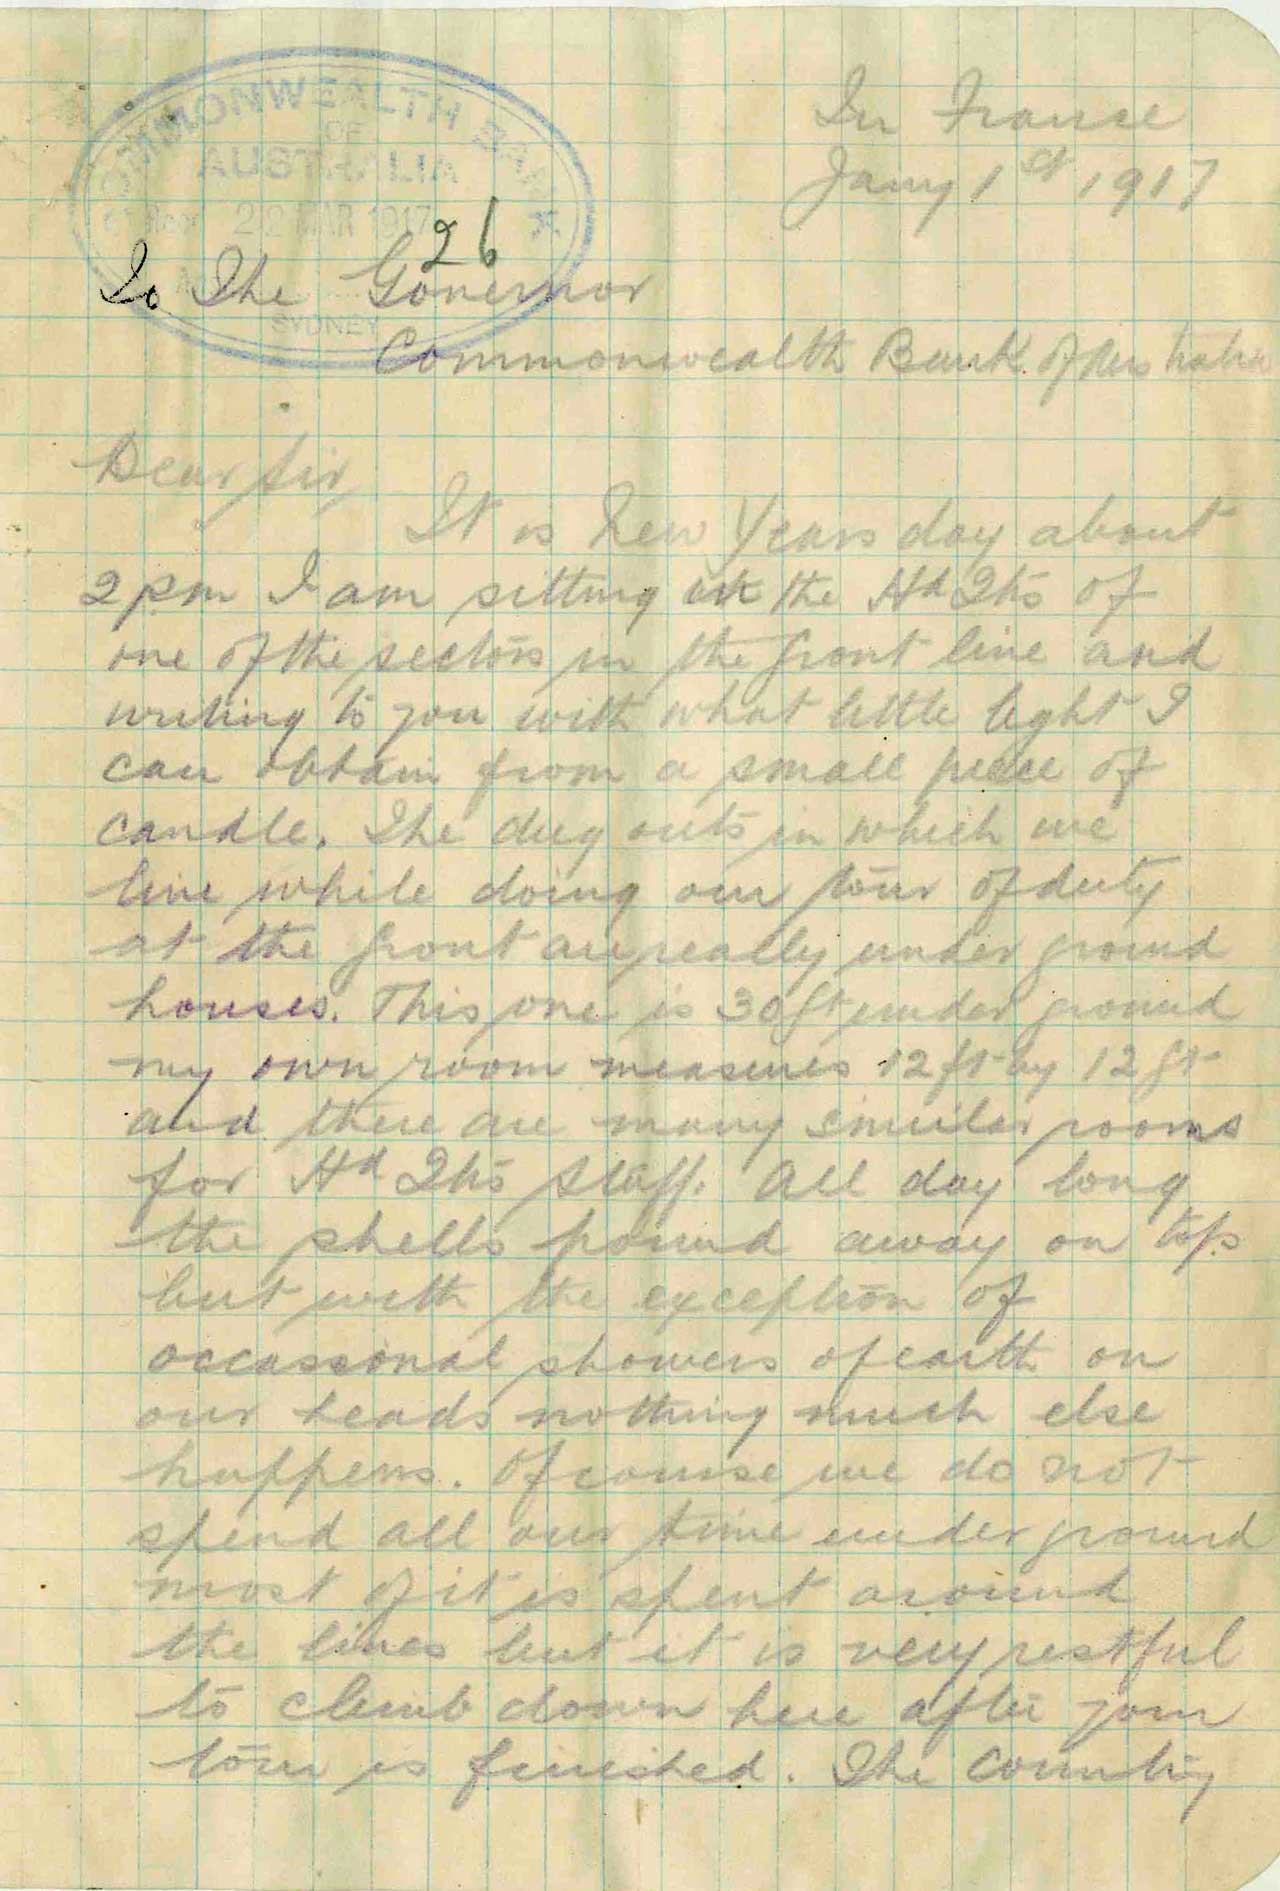 COMMONWEALTH BANK
OF
AUSTRALIA
22 MAR 1917
SYDNEY
26
In France
Jany 1st 1917
To The Governor
Commonwealth Bank of Australia
Dear Sir,
It is New Years day about
2 pm I am sitting at the Hd Qtrs of
one of the sectors in the front line and
writing to you with what little light I
can obtain from a small piece of
candle. The dug outs in which we
live while doing our tour of duty
at the front are really under ground
houses. This one is 30 ft under ground
my own room measures 12 ft by 12 ft
and there are many similar rooms
for Hd Qtrs Staff. All day long
the shells pound away on top
but with the exception of
occassonal showers of earth on
our heads nothing much else
happens. Of course we do not
spend all our time under ground
most of it is spent around
the lines but it is very restful
to climb down here after your
tour is finished. The Country